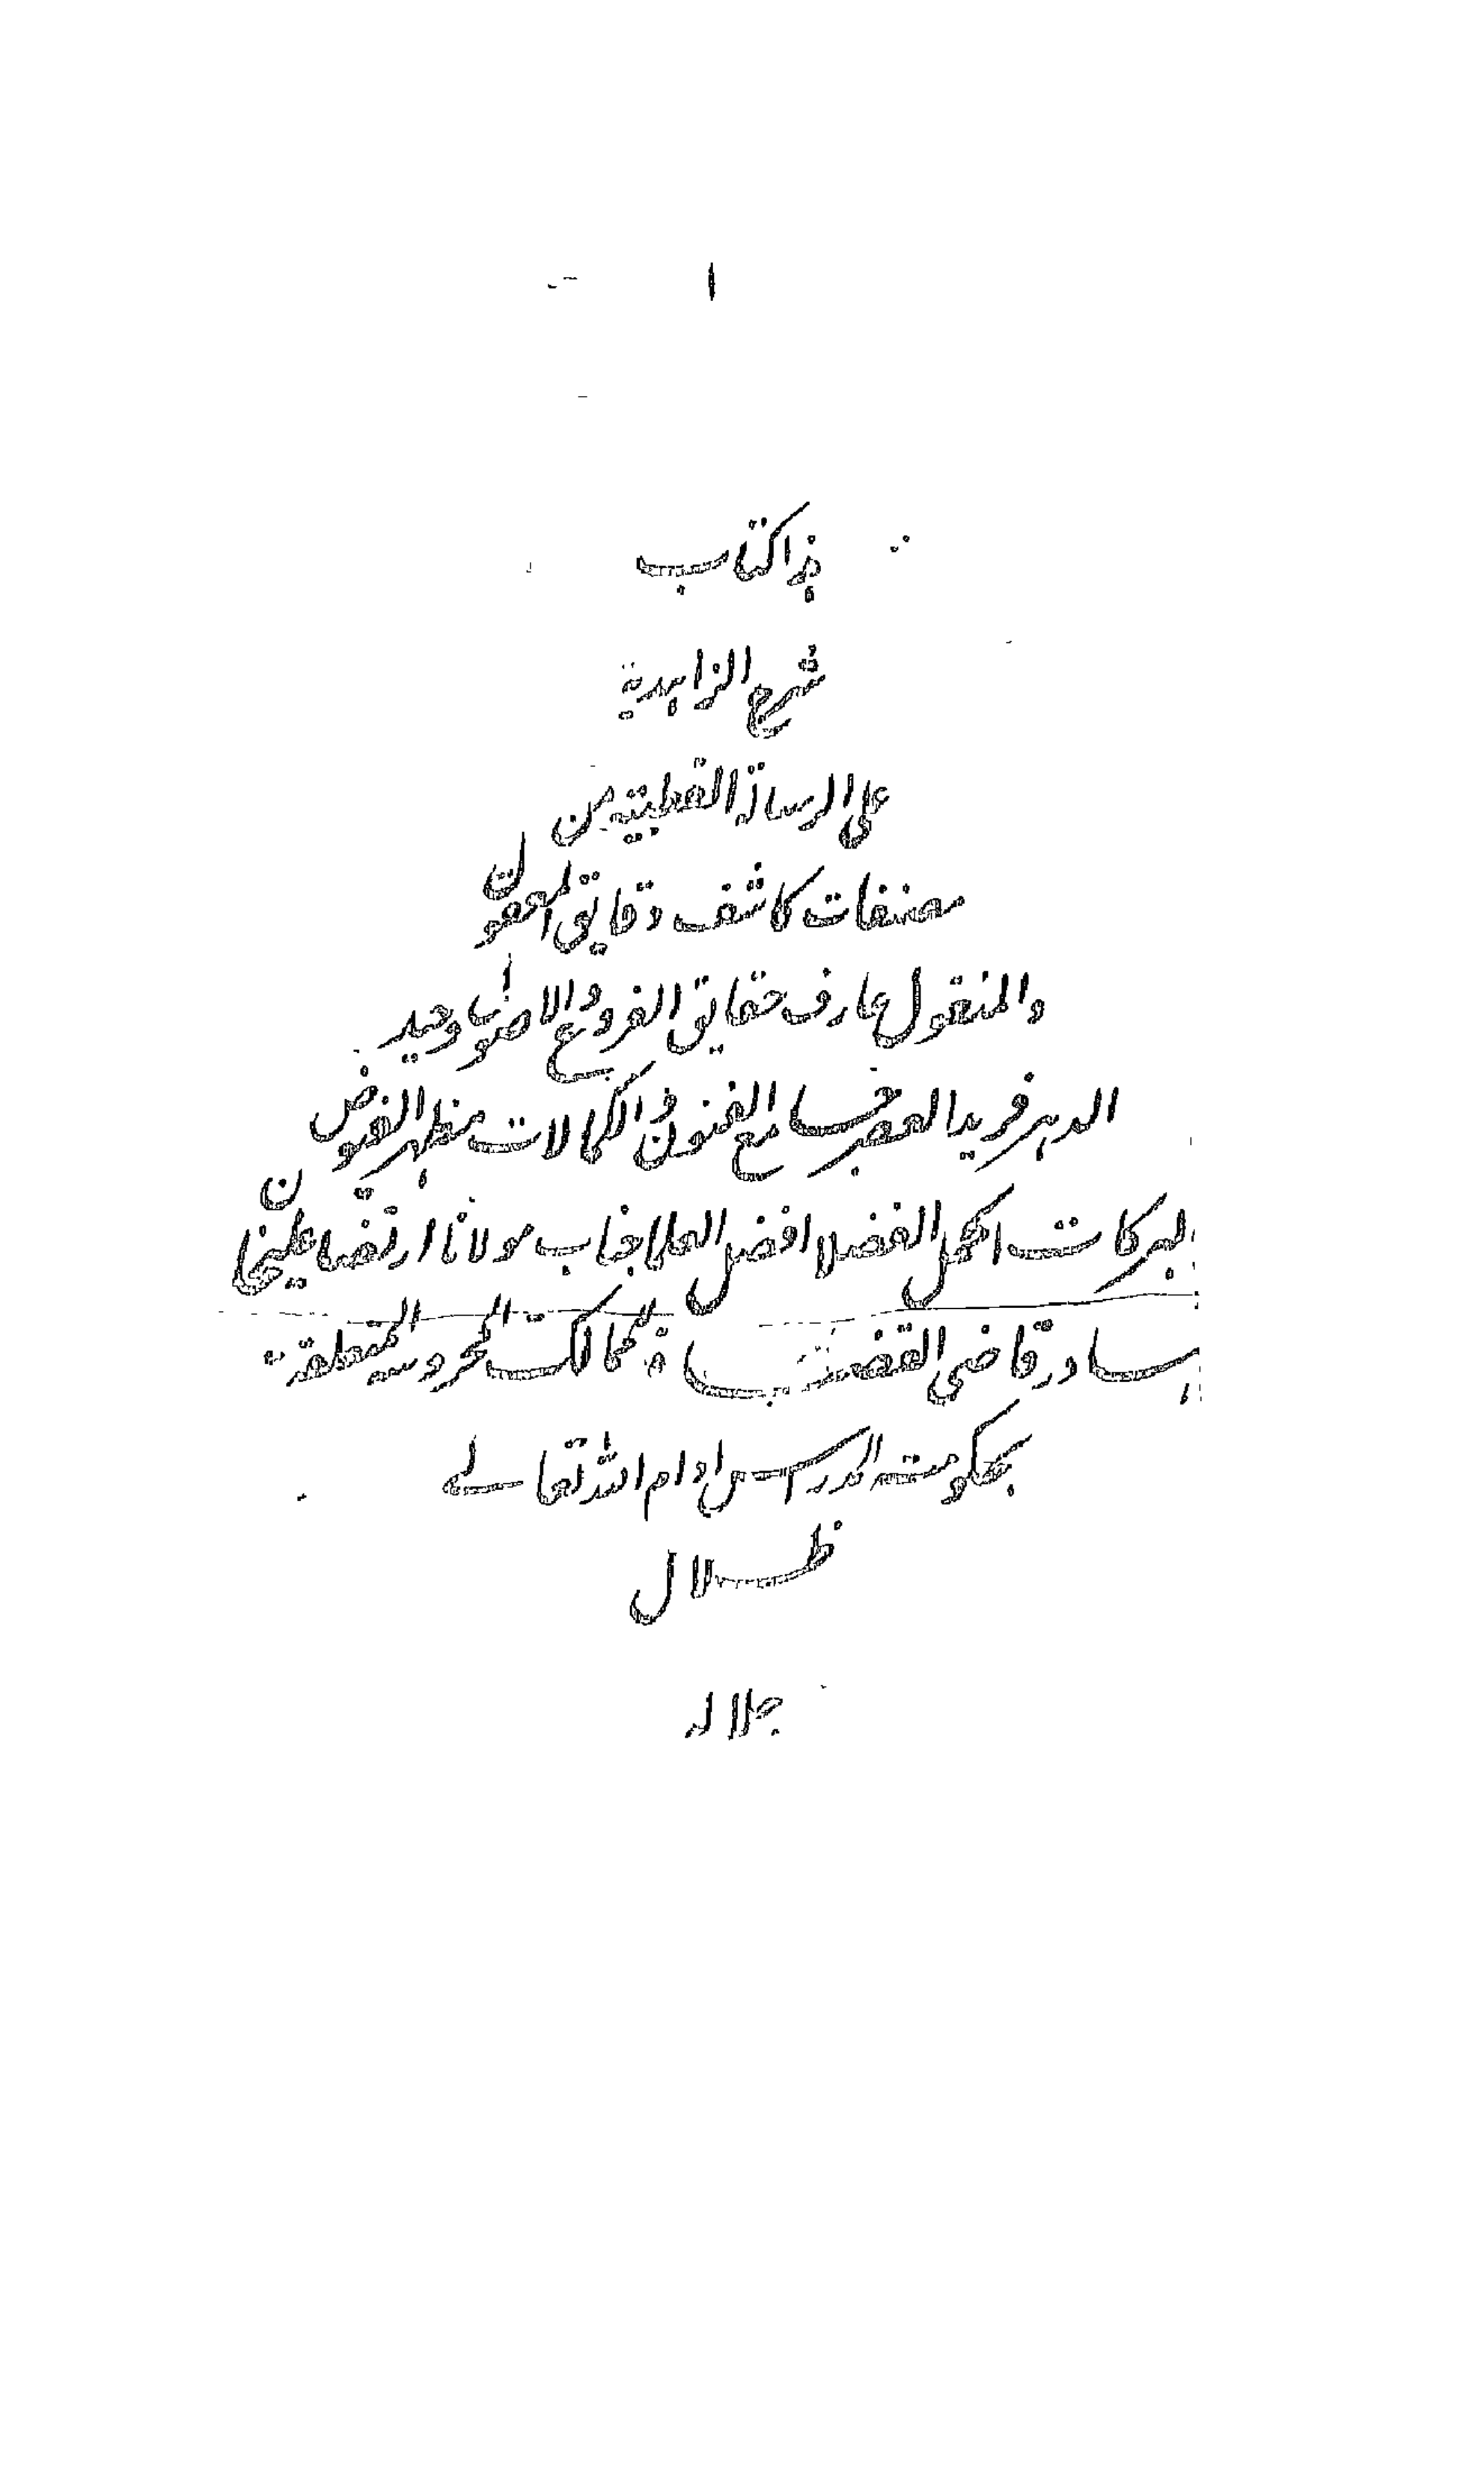 ١
هذا كتاب
شرح الزاهدية
على الرسالة القطبية من
مصنفات كاشف دقايق المعقول
والمنقول عارف حقايق الفروع والاصول وحيد
الدهر فريد العصر جامع الفنون والكمالات مظهر الفيوض
البركات اكمل الفضلا افضل العلما جناب مولانا ارتضا عليخان
بهادر قاضي القضاة للممالك المحروسه المتعلقة
بحكومت المدراس ادام الله تعالے
ظلال
جلاله